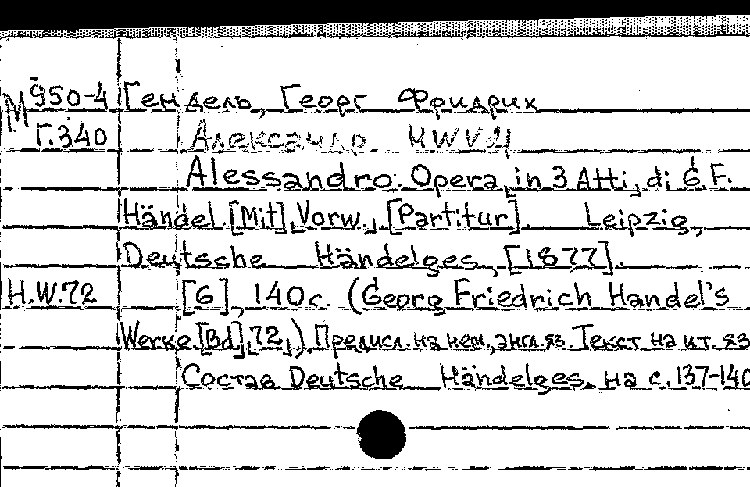 М 950-4 Гендель, Георг Фридрих
Г.340 Александр. HWV 21
Alessandro. Opera, in 3 Atti, di G.F.
Händel. [Mit], Vorw., [Partitur]. Leipzig,
Deutsche Händelges, [1877].
H.W.72 [6], 140 с. (Georg Friedrich Handel's
Werke. [Bd], 72,). Предисл. на нем., англ.яз. Текст на ит. яз
Состав Deutsche Händelges. на с. 137-140